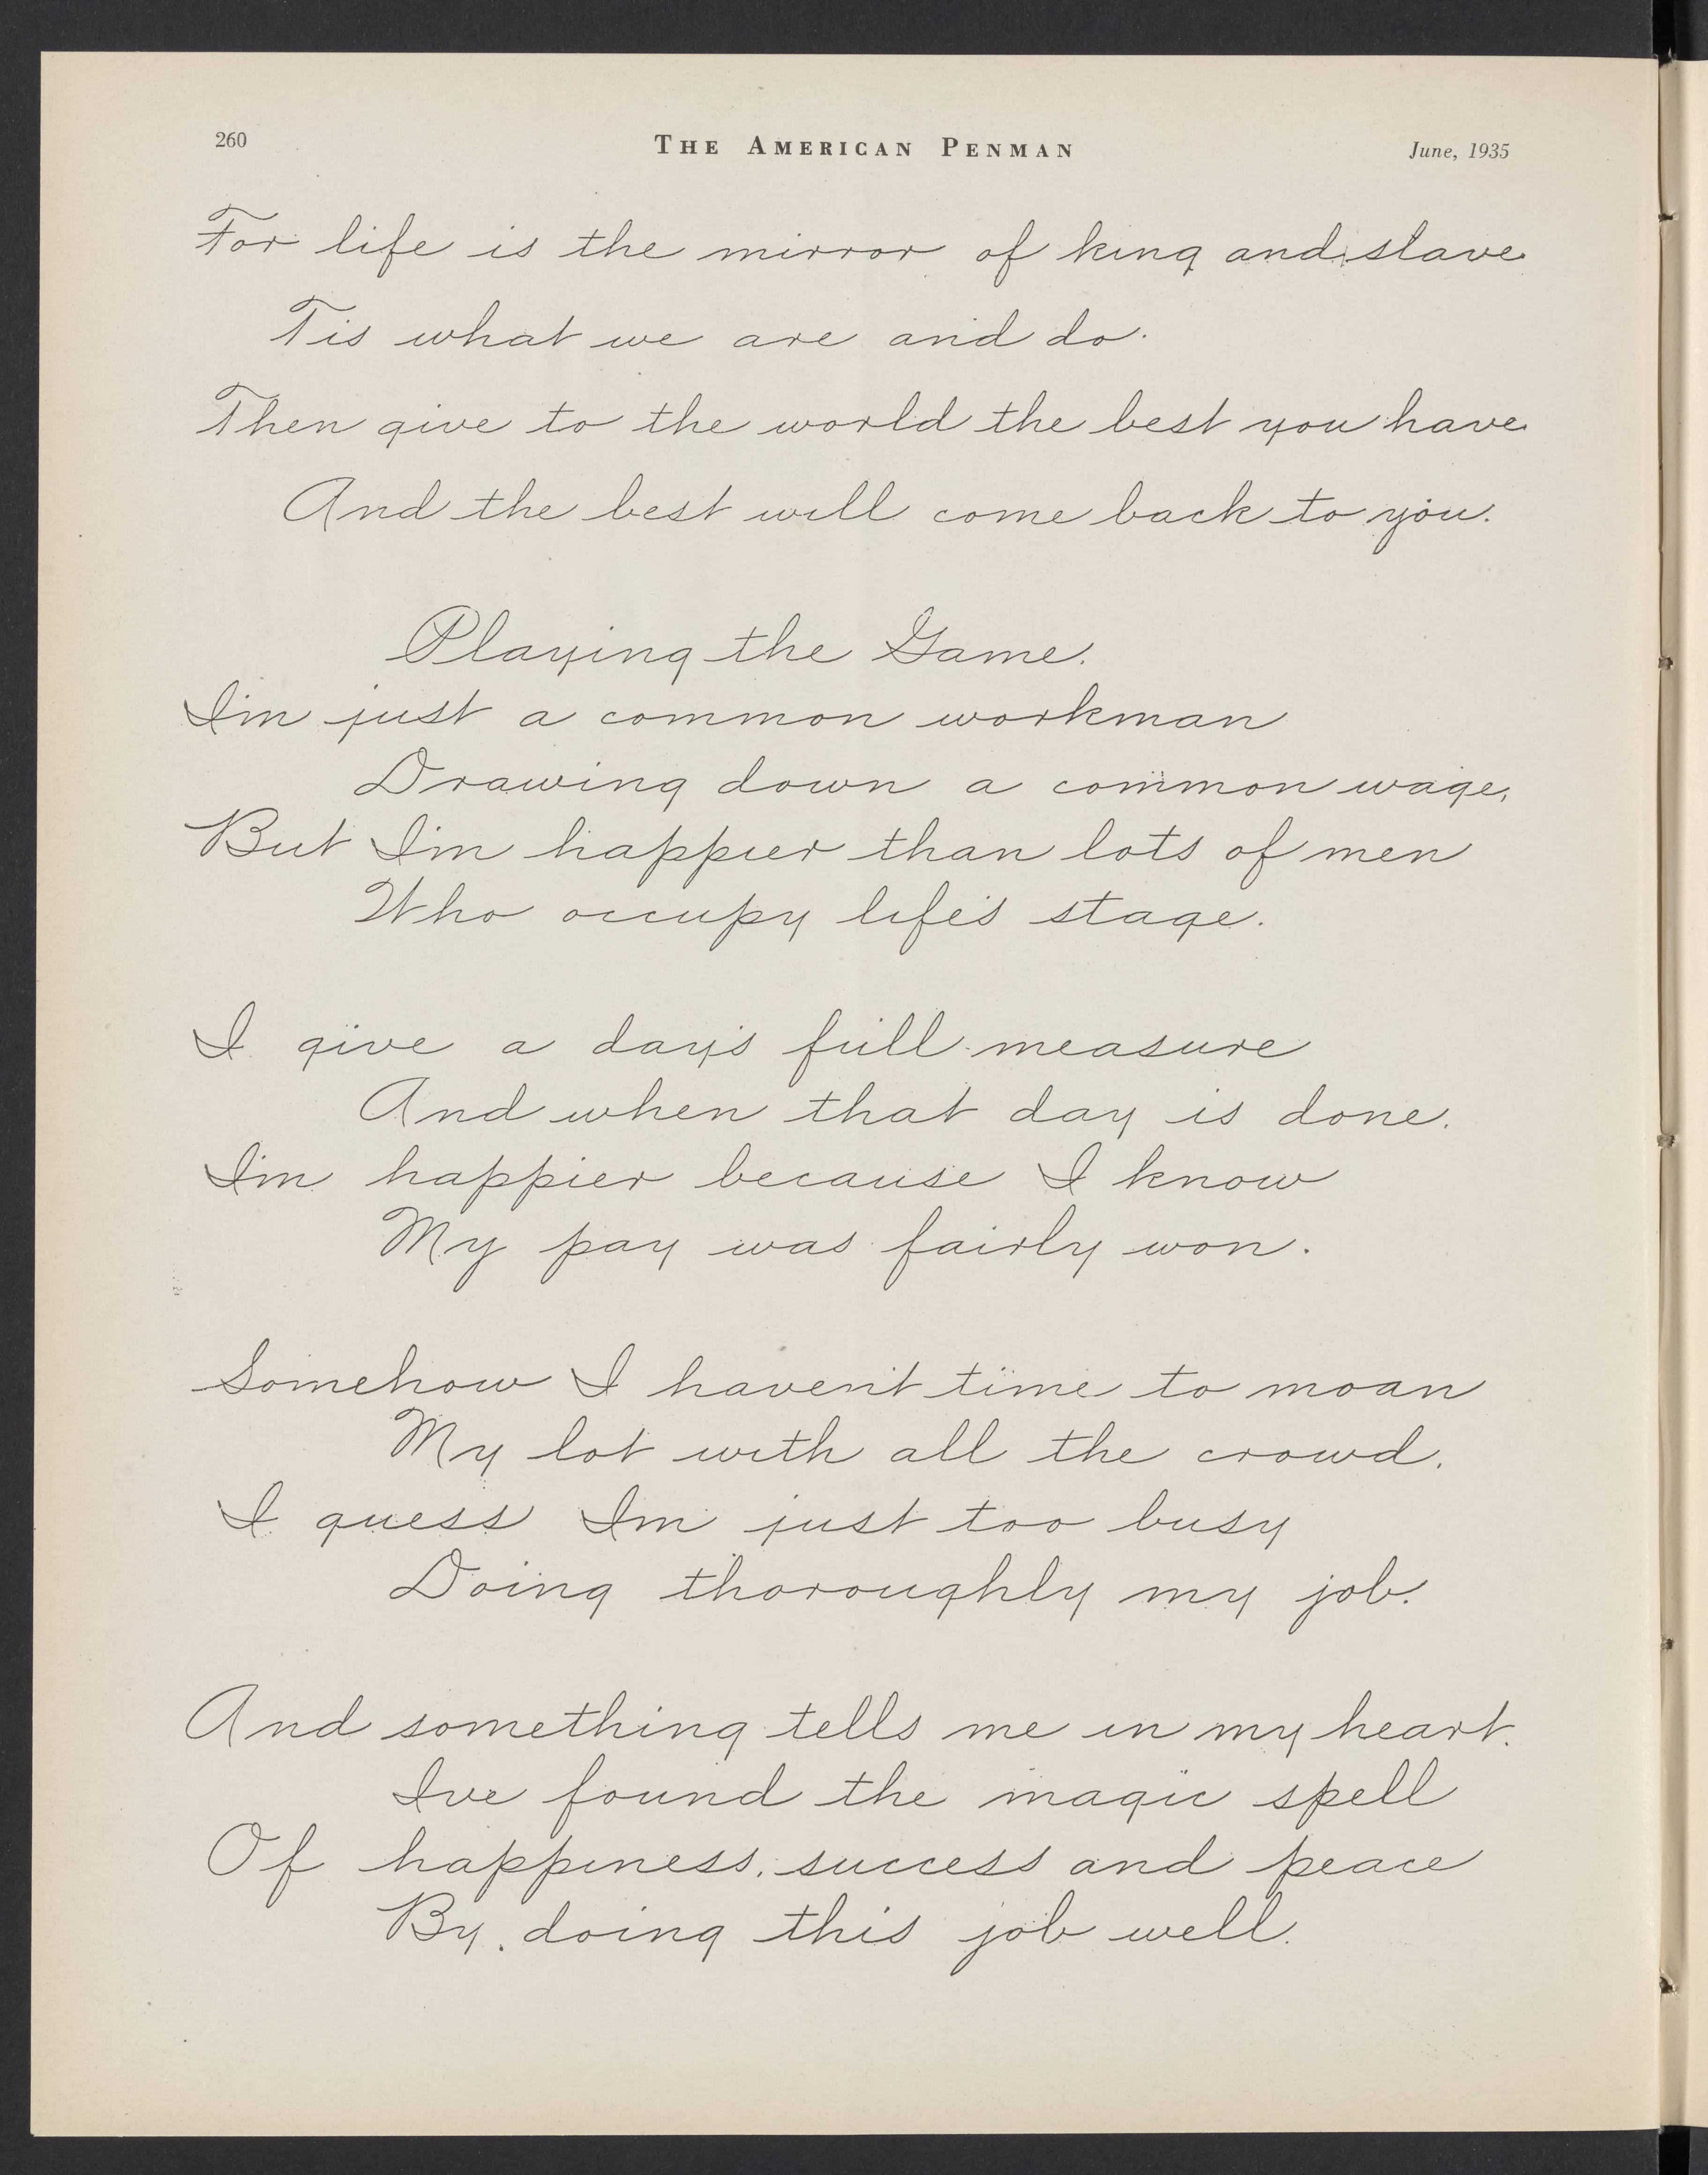 260 THE AMERICAN PENMAN June, 1935
For life is the mirror of king and slave
Tis what we are and do.
Then give to the world the best you have
And the best will come back to you.
Playing the Game.
I'm just a common workman
Drawing down a common wage,
But I'm happier than lots of men
Who occupy life's stage.
I give a day's full measure
And when that day is done.
I'm happier because I know
My pay was fairly won.
Somehow I haven't time to moan
My lot with all the crowd.
I guess Im just too busy
Doing thoroughly my job.
And something tells me in my heart.
Ive found the magic spell
Of happiness, success and peace
By doing this job well.